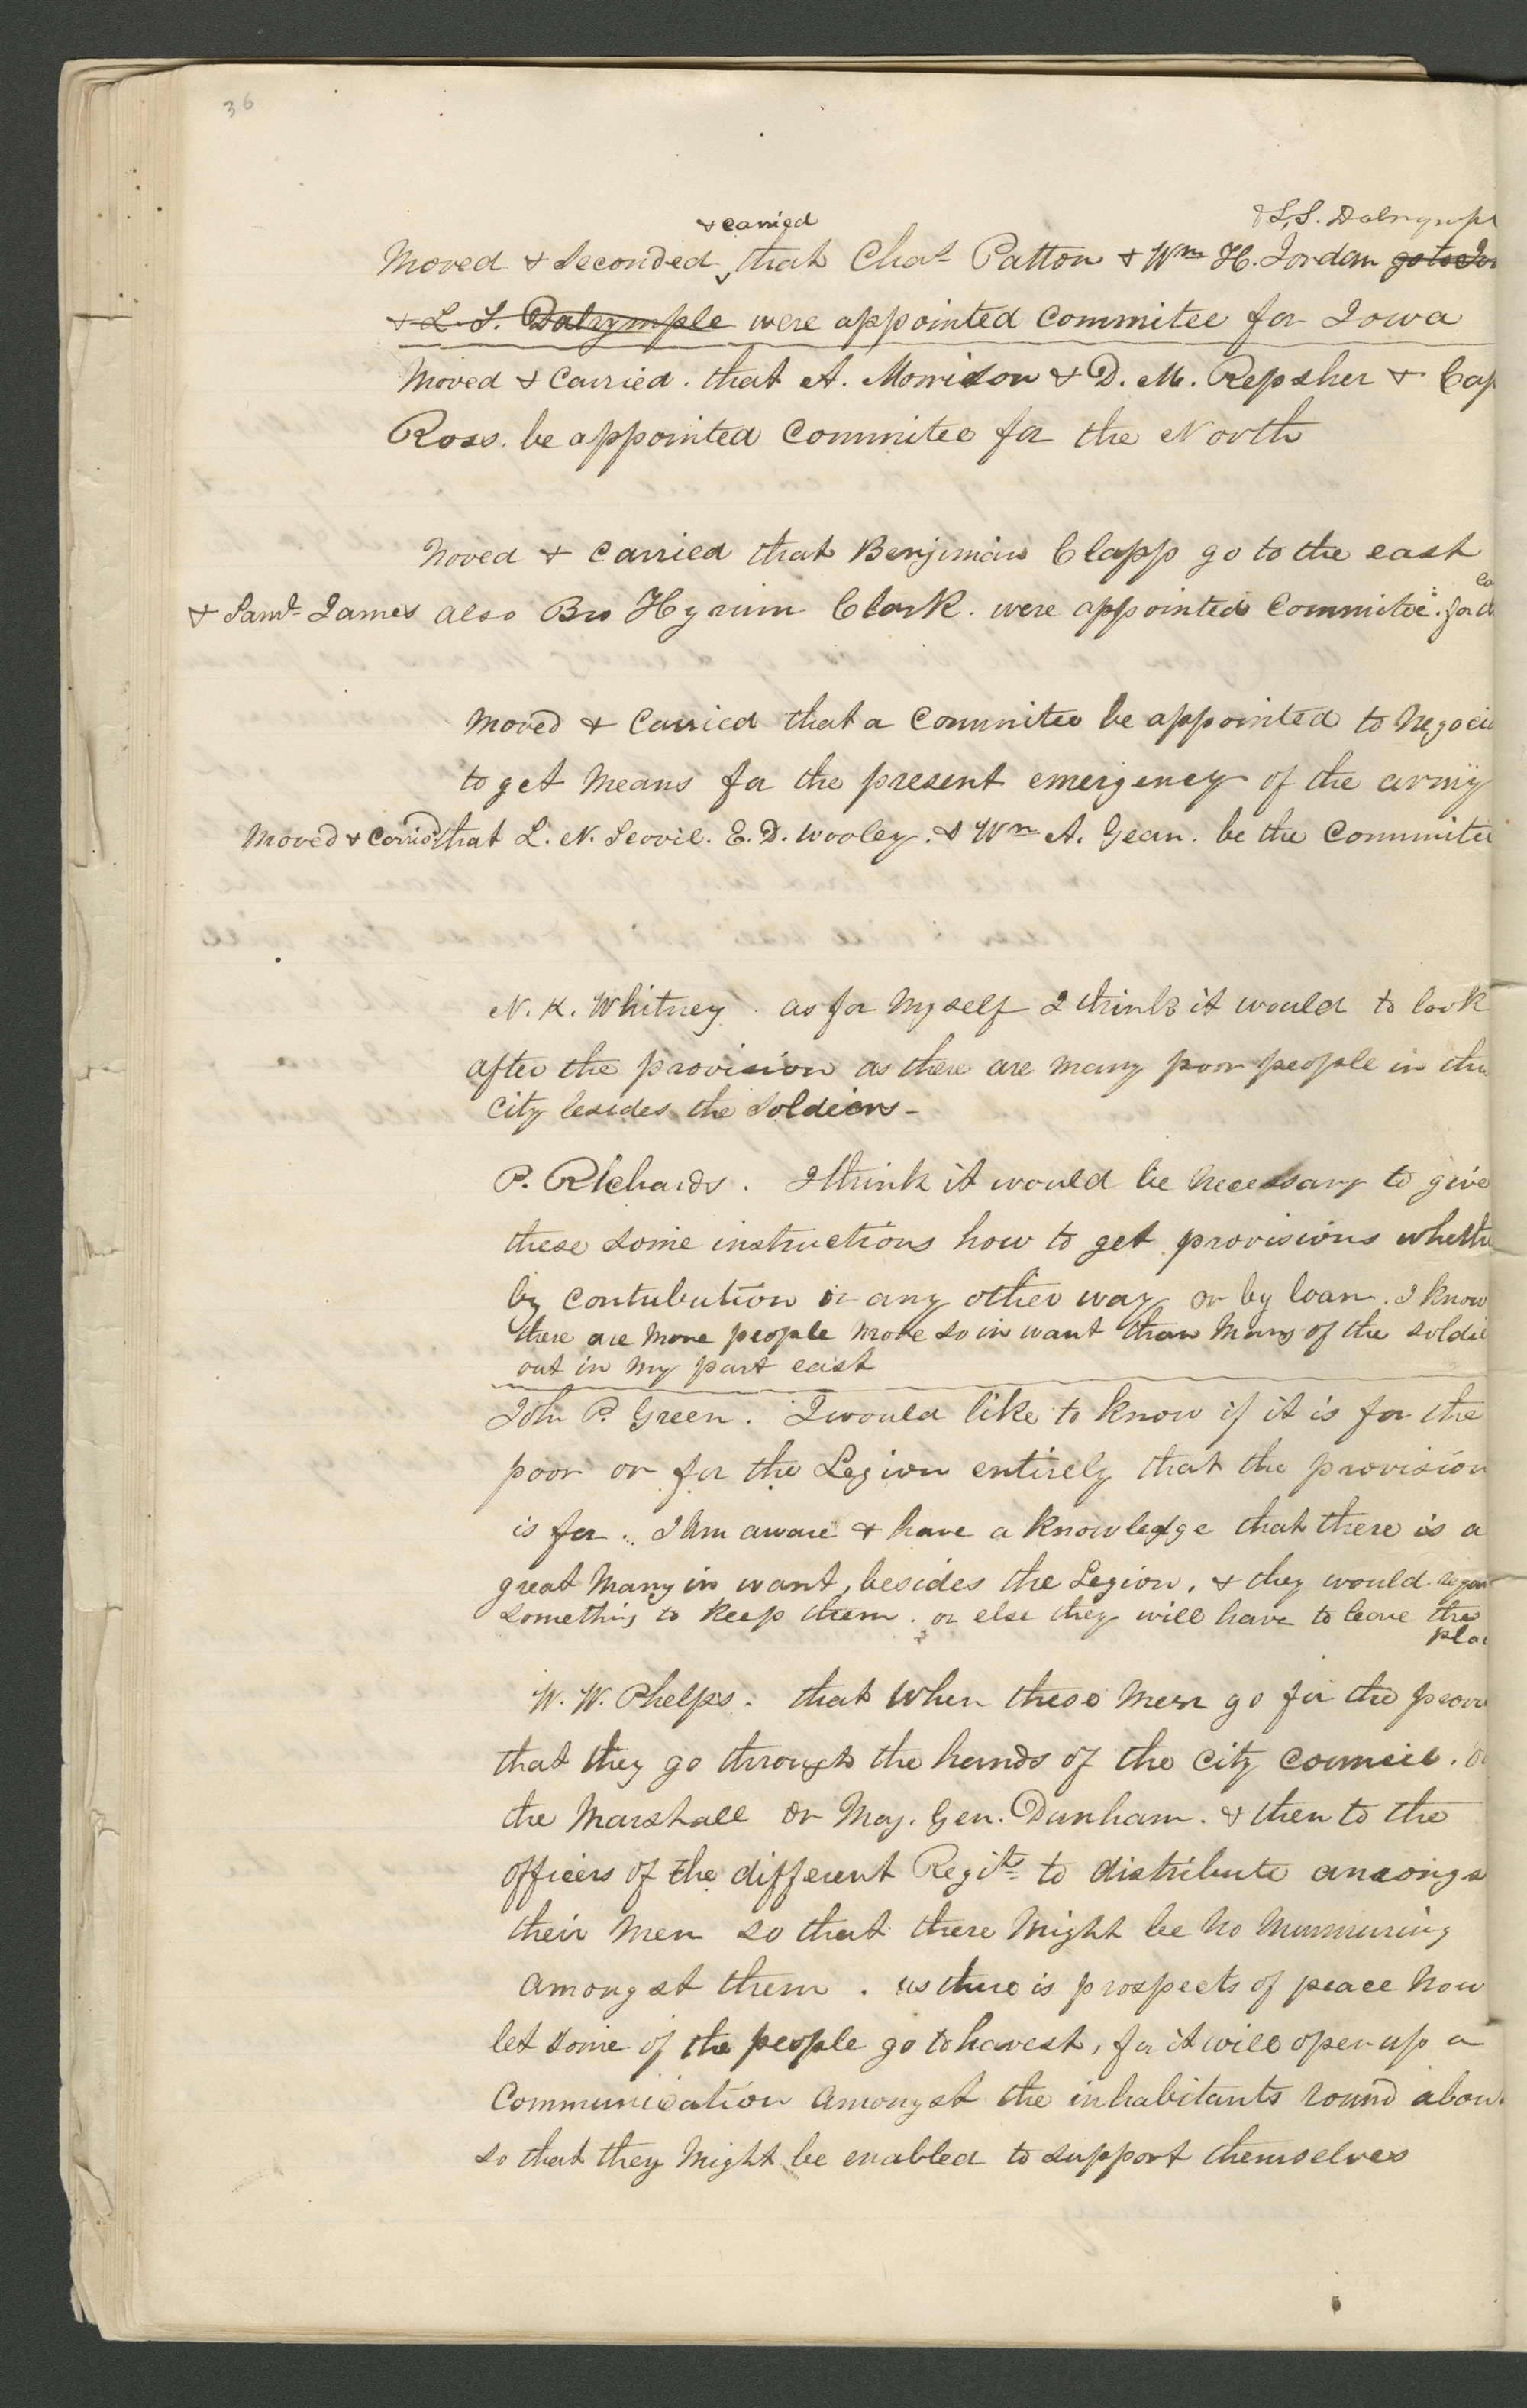 36
& carried & L. S. Dalrympl
Moved & Seconded that Chas Patton & Wm H. Jordan go to Iow
& L. S. Dalrymple were appointed Commitee for Iowa
Moved & Carried. that A. Morrison & D. M. Repsher & Cap
Ross. be appointed Commitee for the North
Moved & Carried that Benjimain Clapp go to the east
& Saml. James also Bro Hyrum Clark. were appointed Commitee. for d
Moved & Carried that a Commitee be appointed to Negoci
to get Means for the present emergency of the army
Moved & Carried that L. N. Scovil. E. D. Wooley. & Wm A. Gean. be the Commitee
N. K. Whitney. as for Myself I think it would to look
after the provision as there are Many poor people in the
City besides the Soldiers-
P. Richards. I think it would be Necessary to give
these some instructions how to get provisions whethe
by Contribution or any other way or by loan. I know
there are More people More so in want than Many of the soldie
out in My part east
John P. Green. I would like to know if it is for the
poor or for the Legion entirely that the provision
is for. I Am aware & have a knowledge that there is a
great Many in want, besides the Legion, & they would
something to keep them. or else they will have to leave the
plac
W. W. Phelps. that When these Men go for the provi
that they go through the hands of the City Council. or
the Marshall or Maj. Gen. Dunham. & then to the
officers of the different Regits to distribute amongs
their Men so that there Might be No Murmuring
Amongst them. as there is prospects of peace Now
let some of the people go to harvest, for it will open up a
Communication Amongst the inhabitants round abou
so that they Might be enabled to support themselves